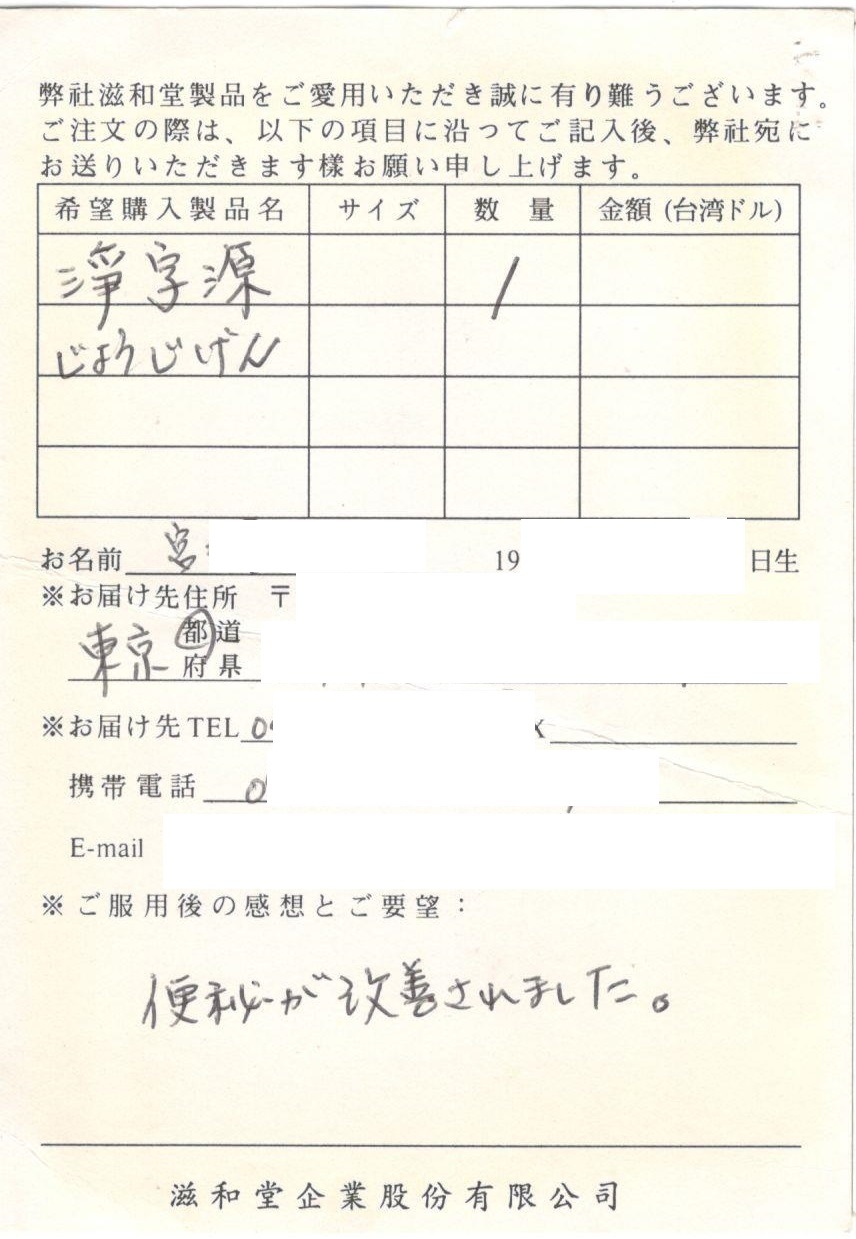 弊社滋和堂製品をご愛用いただき誠に有り難うございます。
ご注文の際は、以下の項目に沿ってご記入後、弊社宛に
お送りいただきます様お願い申し上げます。
希望購入製品名 サイズ 数量 金額 (台湾ドル)
淨字源 1
じょうじげん
お名前 宮 19 日生
※お届け先住所 〒
東京 都道
府県
※お届け先 TEL 0
携帯電話 0
E-mail
※ご服用後の感想とご要望：
便秘が改善されました。
滋和堂企業股份有限公司